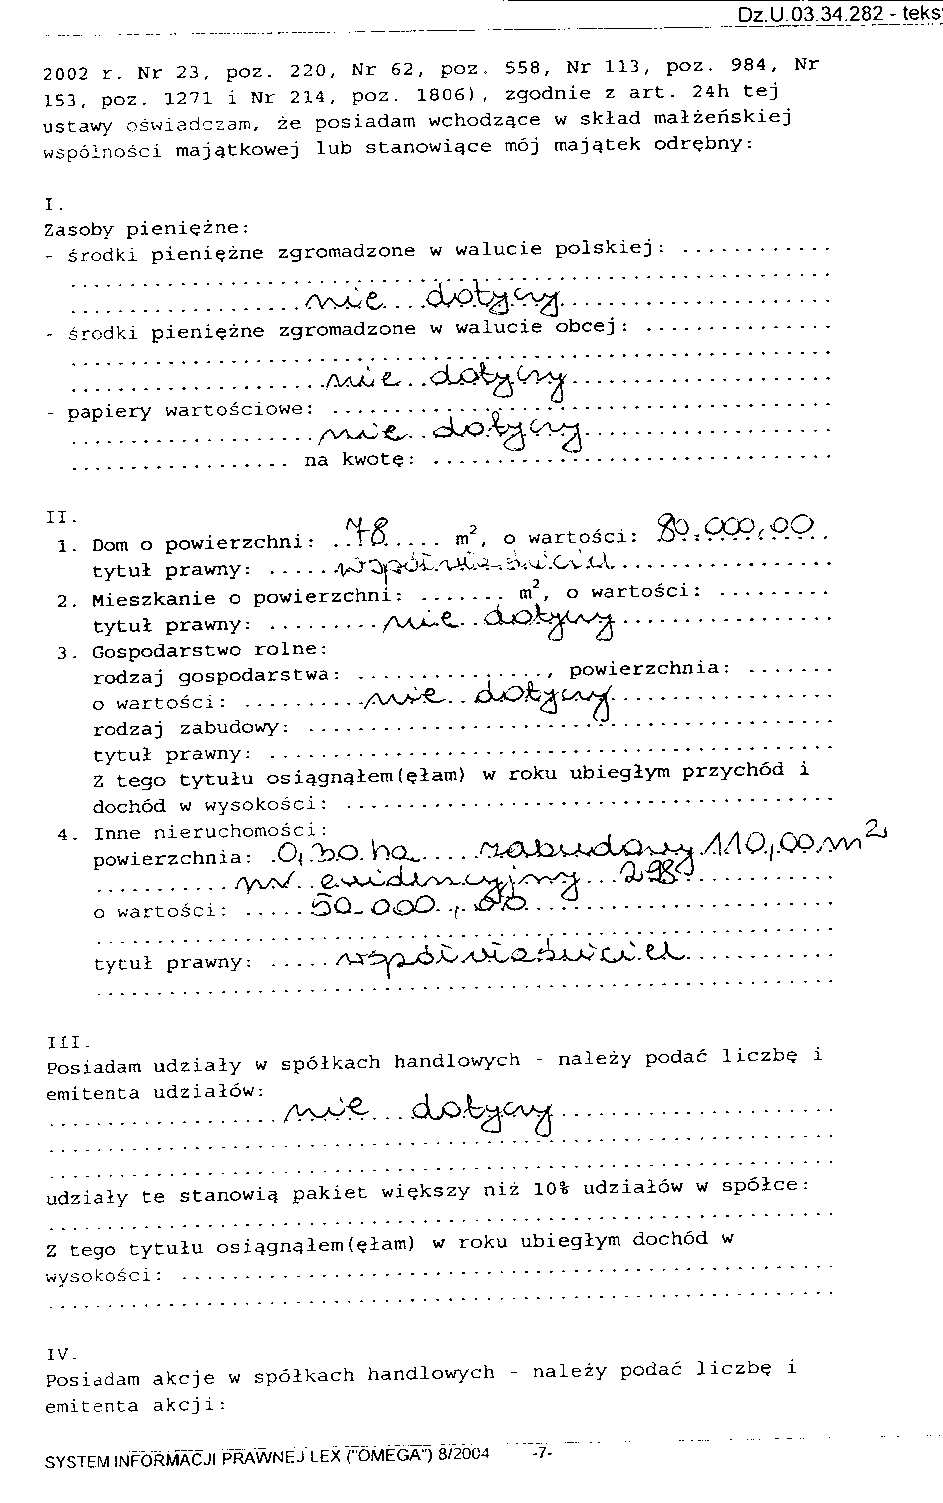 Dz.U.03.34.282 - teks
2002 r. Nr 23, poz. 220, Nr 62, poz. 558, Nr 113, poz. 984, Nr
153, poz. 1271 i Nr 214, poz. 1806), zgodnie z art. 24h tej
ustawy oświadczam, że posiadam wchodzące w skład małżeńskiej
wspólności majątkowej lub stanowiące mój majątek odrębny:
I.
Zasoby pieniężne:
- środki pieniężne zgromadzone w walucie polskiej: ............
nie dotyczy
- środki pieniężne zgromadzone w walucie obcej: ...............
nie dotyczy
- papiery wartościowe: ...............
nie dotyczy
................. na kwotę: ...............
II.
1. Dom o powierzchni: ..78..... m², o wartości: 80.000,00..
tytuł prawny: ..... współwłaściciel
2. Mieszkanie o powierzchni: ....... m², o wartości: .........
tytuł prawny: ......... nie dotyczy
3. Gospodarstwo rolne:
rodzaj gospodarstwa: ..............., powierzchnia: .......
o wartości: .......... nie dotyczy
rodzaj zabudowy: ...............
tytuł prawny: ...............
Z tego tytułu osiągnąłem(ęłam) w roku ubiegłym przychód i
dochód w wysokości: ...............
4. Inne nieruchomości:
powierzchnia: 0,30 ha zabudowy 110,00 m²
nr ewidencyjny
o wartości: ..... 50.000,00
tytuł prawny: ..... współwłaściciel
III.
Posiadam udziały w spółkach handlowych - należy podać liczbę i
emitenta udziałów:
nie dotyczy
udziały te stanowią pakiet większy niż 10% udziałów w spółce:
Z tego tytułu osiągnąłem(ęłam) w roku ubiegłym dochód w
wysokości: ...............
IV.
Posiadam akcje w spółkach handlowych - należy podać liczbę i
emitenta akcji:
SYSTEM INFORMACJI PRAWNEJ LEX ("OMEGA") 8/2004 -7-